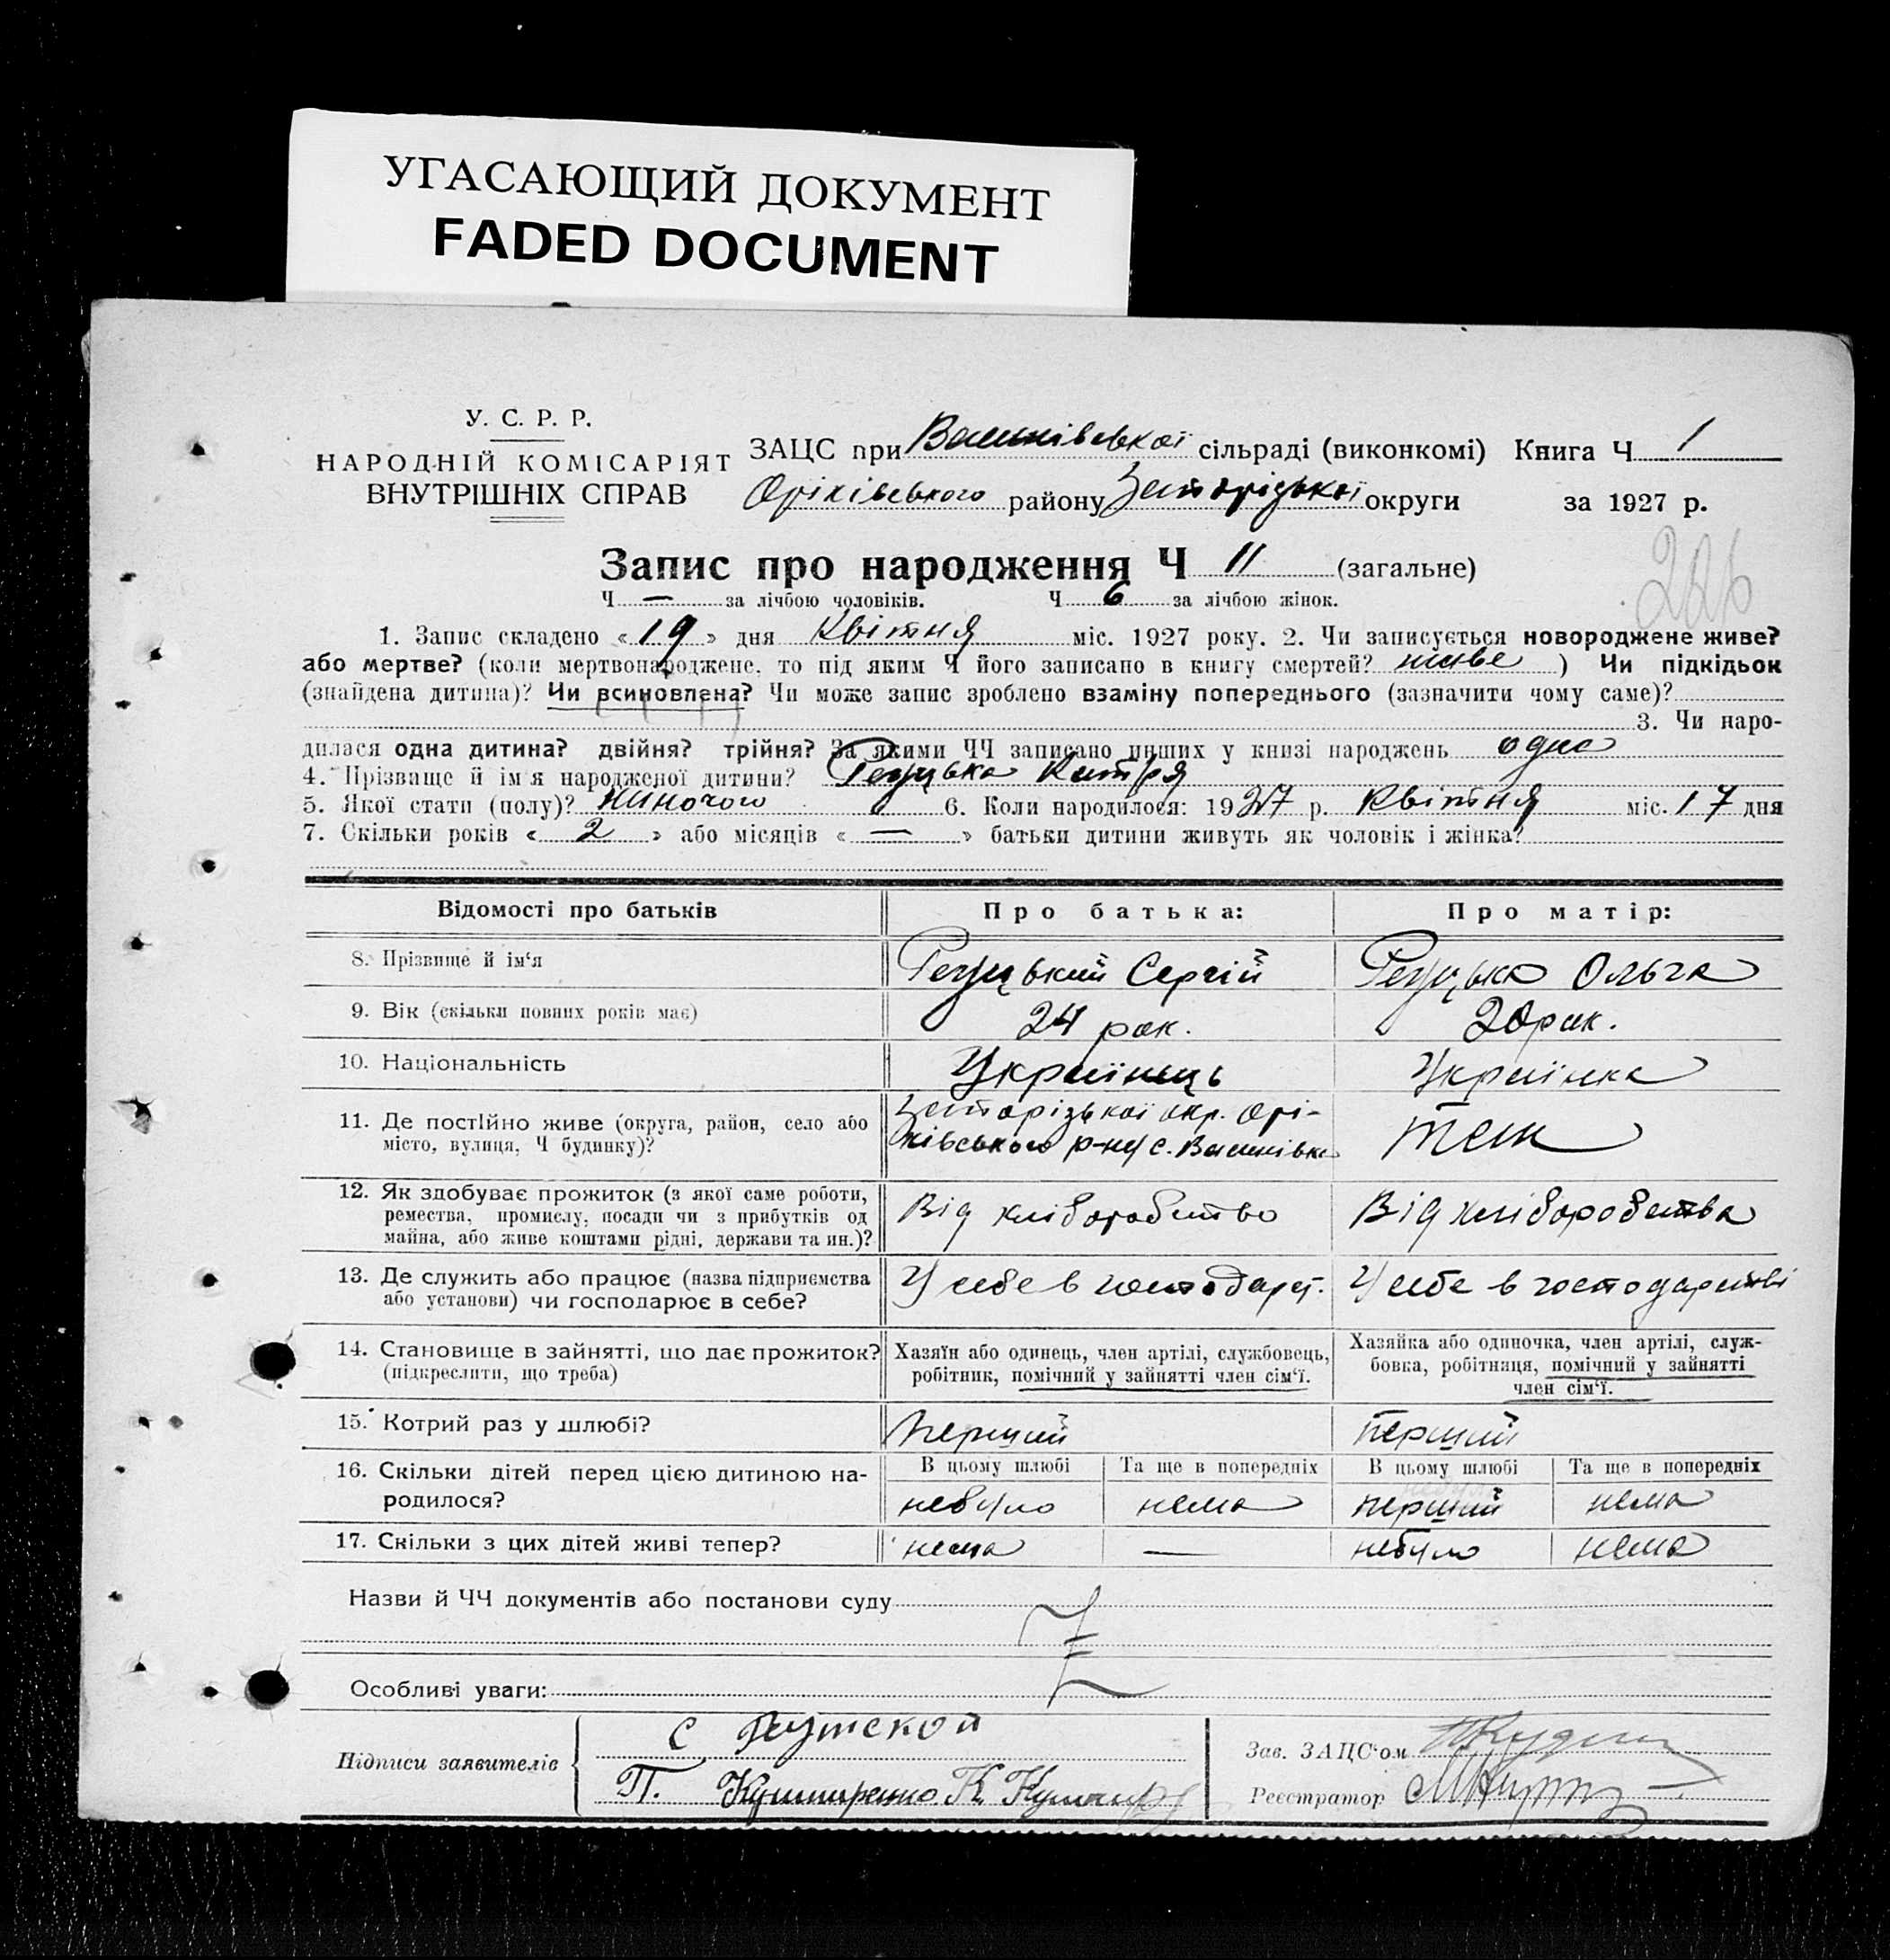 УГАСАЮЩИЙ ДОКУМЕНТ
FADED DOCUMENT
У. С. Р. Р.
НАРОДНІЙ КОМІСАРІЯТ
ВНУТРІШНІХ СПРАВ
ЗАЦС при сільраді (виконкомі) Книга Ч 1
Оріхівського району Запорізької округи за 1927 р.
Запис про народження Ч 11 (загальне)
Ч — за лічбою чоловіків. Ч 6 за лічбою жінок.
1. Запис складено « 19 » дня Квітня міс. 1927 року. 2. Чи записується новороджене живе?
або мертве? (коли мертвонароджене, то під яким Ч його записано в книгу смертей? живе ) Чи підкідьок
(знайдена дитина)? Чи всиновлена? Чи може запис зроблено взаміну попереднього (зазначити чому саме)?
3. Чи наро-
дилася одна дитина? двійня? трійня? За якими ЧЧ записано инших у книзі народжень одно
4. Прізвище й ім'я народженої дитини? Катря
5. Якої стати (полу)? жиночого 6. Коли народилося: 1927 р. Квітня міс. 17 дня
7. Скільки років « 2 » або місяців « — » батьки дитини живуть як чоловік і жінка?
Відомості про батьків Про батька: Про матір:
8. Прізвище й ім'я Сергій Ольга
9. Вік (скільки повних років має) 24 рок. 20 рок.
10. Національність Українець Українка
11. Де постійно живе (округа, район, село або Запорізької окр. Орі-
місто, вулиця, Ч будинку)? хівського р-ну с. теж
12. Як здобуває прожиток (з якої саме роботи,
ремества, промислу, посади чи з прибутків од Від хліборобство Від хліборобства
майна, або живе коштами рідні, держави та ин.)?
13. Де служить або працює (назва підприємства У себе в господарст. У себе в господарстві
або установи) чи господарює в себе?
14. Становище в зайнятті, що дає прожиток? Хазяїн або одинець, член артілі, службовець, Хазяйка або одиночка, член артілі, служ-
(підкреслити, що треба) робітник, помічний у зайнятті член сім'ї. бовка, робітниця, помічний у зайнятті
член сім'ї.
15. Котрий раз у шлюбі? перший перший
16. Скільки дітей перед цією дитиною на- В цьому шлюбі Та ще в попередніх В цьому шлюбі Та ще в попередніх
родилося? небуло нема перший нема
17. Скільки з цих дітей живі тепер? нема — небуло нема
Назви й ЧЧ документів або постанови суду
Особливі уваги:
Підписи заявителів
Зав. ЗАЦС'ом
П. К.
Реєстратор